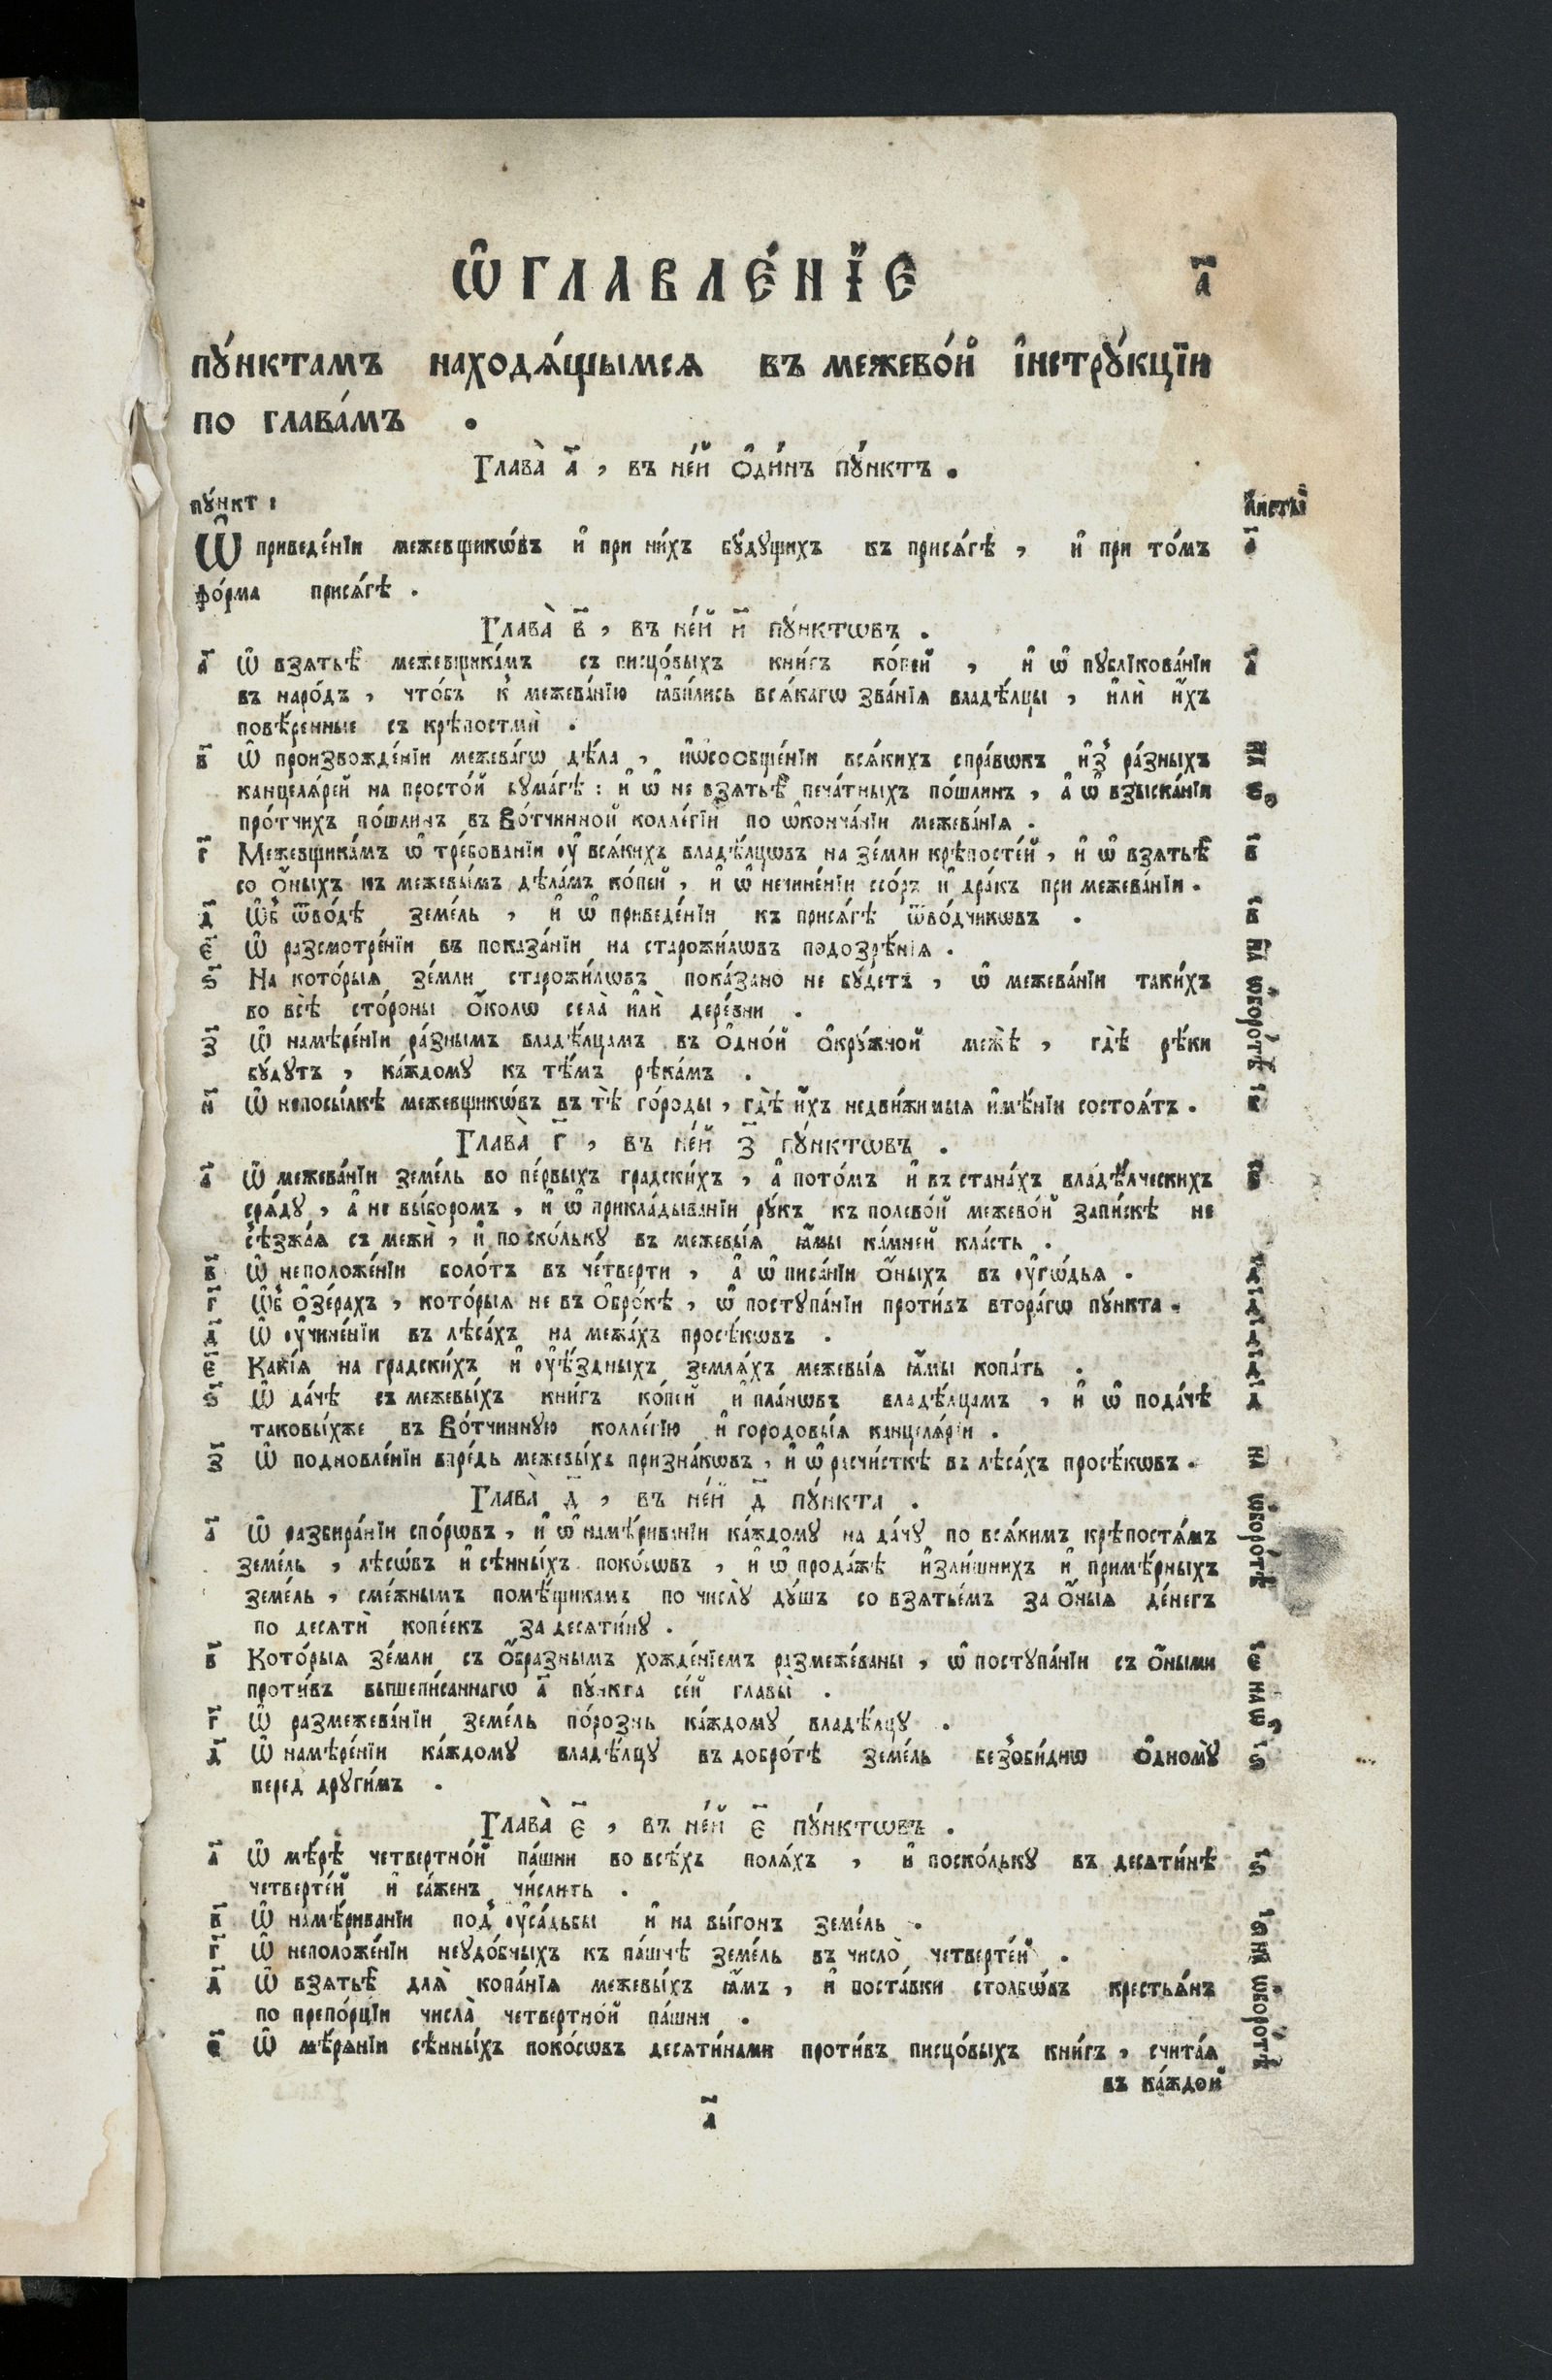 Ѡ҆ГЛАВЛЕ́НЇЕ а҃
пꙋ́нктамъ находѧ́щымсѧ въ межево́й і҆нстрꙋ́кцїи
по глава́мъ .
Глава̀ а҃ , въ не́й ѻ҆ди́нъ пꙋ́нктъ .
пꙋ́нкт : листы̀
Ѡ҆ приведе́нїи межевщикѡ́въ и҆ при ни́хъ бꙋ́дꙋщихъ къ присѧ́гѣ , и҆ при то́мъ а҃
фо́рма присѧ́гѣ .
Глава̀ в҃ , въ не́й и҃ пꙋ́нктѡвъ .
а҃ Ѡ҆ взятьѣ̀ межевщика́мъ съ писцо́выхъ кни́гъ ко́пей , и҆ ѡ҆ пꙋбліко́ванїи а҃
въ наро́дъ , что́бъ к̾ межева́нїю ꙗ҆ви́лись всѧ́кагѡ зва́нїѧ владѣ́лцы , и҆лѝ и҆́хъ
повѣ́ренные съ крѣпостмѝ .
в҃ Ѡ҆ произвожде́нїи межева́гѡ дѣ́ла , и҆ѡсообще́нїи всѧ́кихъ спра́вокъ и҆з̾ ра́зныхъ на
канцелѧ́рей на просто́й бꙋма́гѣ : и҆ ѡ҆ не взятьѣ̀ печа́тныхъ по́шлинъ , а҆ ѡ҆ взыска́нїи
про́тчихъ по́шлинъ въ Во́тчинной колле́гїи по ѡ҆конча́нїи межева́нїѧ .
г҃ Межевщика́мъ ѡ҆ тре́бованїи ᲂу҆ всѧ́кихъ владѣ́лцѡвъ на зе́мли крѣпосте́й , и҆ ѡ҆ взятьѣ̀ в҃
со ѻ҆́ныхъ къ межевы́мъ дѣла́мъ ко́пей , и҆ ѡ҆ нечине́нїи ссо́ръ и҆ дра́къ при межева́нїи .
д҃ Ѡ҆б̾ ѿво́дѣ земе́ль , и҆ ѡ҆ приведе́нїи къ присѧ́гѣ ѿво́дчикѡвъ . в҃
є҃ Ѡ҆ разсмотре́нїи въ показа́нїи на старожи́лѡвъ подозрѣ́нїѧ . на
ѕ҃ На кото́рыѧ зе́мли старожи́лѡвъ пока́зано не бꙋ́детъ , ѡ҆ межева́нїи таки́хъ ѡборо́тѣ
во всѣ̀ сто́роны ѻ҆́колѡ села̀ и҆лѝ дере́вни .
з҃ Ѡ҆ намѣре́нїи ра́знымъ владѣ́лцамъ въ ѻ҆дно́й ѻ҆крꙋ́жной межѣ̀ , гдѣ̀ рѣ́ки
бꙋ́дꙋтъ , ка́ждомꙋ къ тѣ́мъ рѣка́мъ .
и҃ Ѡ҆ непосы́лкѣ межевщикѡ́въ въ тѣ̀ го́роды , гдѣ̀ и҆́хъ недви́жимыѧ и҆мѣ́нїи состоѧ́тъ .
Глава̀ г҃ , въ не́й з҃ пꙋ́нктѡвъ .
а҃ Ѡ҆ межева́нїи земе́ль во пе́рвыхъ градски́хъ , а҆ пото́мъ и҆ въ стана́хъ владѣ́лческихъ
срѧ́дꙋ , а҆ не вы́боромъ , и҆ ѡ҆ прикла́дыванїи рꙋ́къ къ полево́й межево́й запи́скѣ не
съѣзжа́ѧ съ межѝ , и҆ поско́лькꙋ въ межевы́ѧ ꙗ҆́мы ка́мней кла́сть .
в҃ Ѡ҆ неположе́нїи боло́тъ въ че́тверти , а҆ ѡ҆ писа́нїи ѻ҆́ныхъ въ ᲂу҆гѡ́дьѧ . д҃
г҃ Ѡ҆б̾ ѻ҆зе́рахъ , кото́рыѧ не въ ѻ҆бро́кѣ , ѡ҆ постꙋпа́нїи проти́въ втора́гѡ пꙋ́нкта . д҃
д҃ Ѡ҆ ᲂу҆чине́нїи въ лѣса́хъ на межа́хъ просѣ́кѡвъ . д҃
є҃ Какі́ѧ на градски́хъ и҆ ᲂу҆ѣ́здныхъ землѧ́хъ межевы́ѧ ꙗ҆́мы копа́ть . д҃
ѕ҃ Ѡ҆ да́чѣ съ межевы́хъ кни́гъ ко́пей и҆ пла́нѡвъ владѣ́лцамъ , и҆ ѡ҆ пода́чѣ д҃
таковы́хже въ Во́тчиннꙋю колле́гїю и҆ городовы́ѧ канцелѧ́рїи .
з҃ Ѡ҆ подновле́нїи впре́дь межевы́хъ призна́кѡвъ , и҆ ѡ҆ расчи́сткѣ въ лѣса́хъ просѣ́кѡвъ . на
Глава̀ д҃ , въ не́й д҃ пꙋ́нкта . ѡборо́тѣ
а҃ Ѡ҆ разбира́нїи спо́рѡвъ , и҆ ѡ҆ намѣ́риванїи ка́ждомꙋ на да́чꙋ по всѧ́кимъ крѣпостѧ́мъ
земе́ль , лѣсѡ́въ и҆ сѣ́нныхъ поко́сѡвъ , и҆ ѡ҆ прода́жѣ и҆зли́шнихъ и҆ примѣ́рныхъ
земе́ль , сме́жнымъ помѣ́щикамъ по числꙋ̀ дꙋ́шъ со взятье́мъ за ѻ҆́ныѧ де́негъ
по десятѝ копе́екъ за десяти́нꙋ .
в҃ Кото́рыѧ зе́мли съ ѻ҆́бразнымъ хожде́нїемъ размеже́ваны , ѡ҆ постꙋпа́нїи съ ѻ҆́ными є҃
проти́въ вышепи́саннагѡ а҃ пꙋ́нкта се́й главы̀ .
г҃ Ѡ҆ размежева́нїи земе́ль по́рознь ка́ждомꙋ владѣ́лцꙋ . на ѡ
д҃ Ѡ҆ намѣре́нїи ка́ждомꙋ владѣ́лцꙋ въ добро́тѣ земе́ль без̾оби́днѡ ѻ҆дномꙋ̀ ѕ҃
перед дрꙋги́мъ .
Глава̀ є҃ , въ не́й є҃ пꙋ́нктѡвъ .
а҃ Ѡ҆ мѣ́рѣ четвертно́й па́шни во всѣ́хъ полѧ́хъ , и҆ поско́лькꙋ въ десяти́нѣ ѕ҃
четверте́й и҆ са́женъ чи́слить .
в҃ Ѡ҆ намѣ́риванїи под̾ ᲂу҆са́дьбы и҆ на вы́гонъ земе́ль .
г҃ Ѡ҆ неположе́нїи неꙋдо́бныхъ къ па́шнѣ земе́ль въ число̀ четверте́й . на
д҃ Ѡ҆ взятьѣ̀ длѧ̀ копа́нїѧ межевы́хъ ꙗ҆́мъ , и҆ поста́вки столбѡ́въ крестьѧ́нъ ѡборо́тѣ
по препо́рцїи числа̀ четвертно́й па́шни .
є҃ Ѡ҆ мѣ́рѧнїи сѣ́нныхъ поко́сѡвъ десяти́нами проти́въ писцо́выхъ кни́гъ , счита́ѧ
въ ка́ждой
а҃